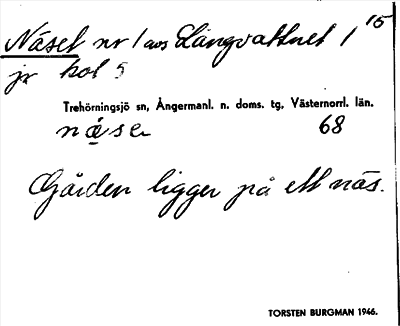 Näset nr 1 avs Långvattnet 1 15
jr kol 5
Trehörningsjö sn, Ångermanl. n. doms. tg, Västernorrl. län.
68
Gården ligger på ett näs.
TORSTEN BURGMAN 1946.